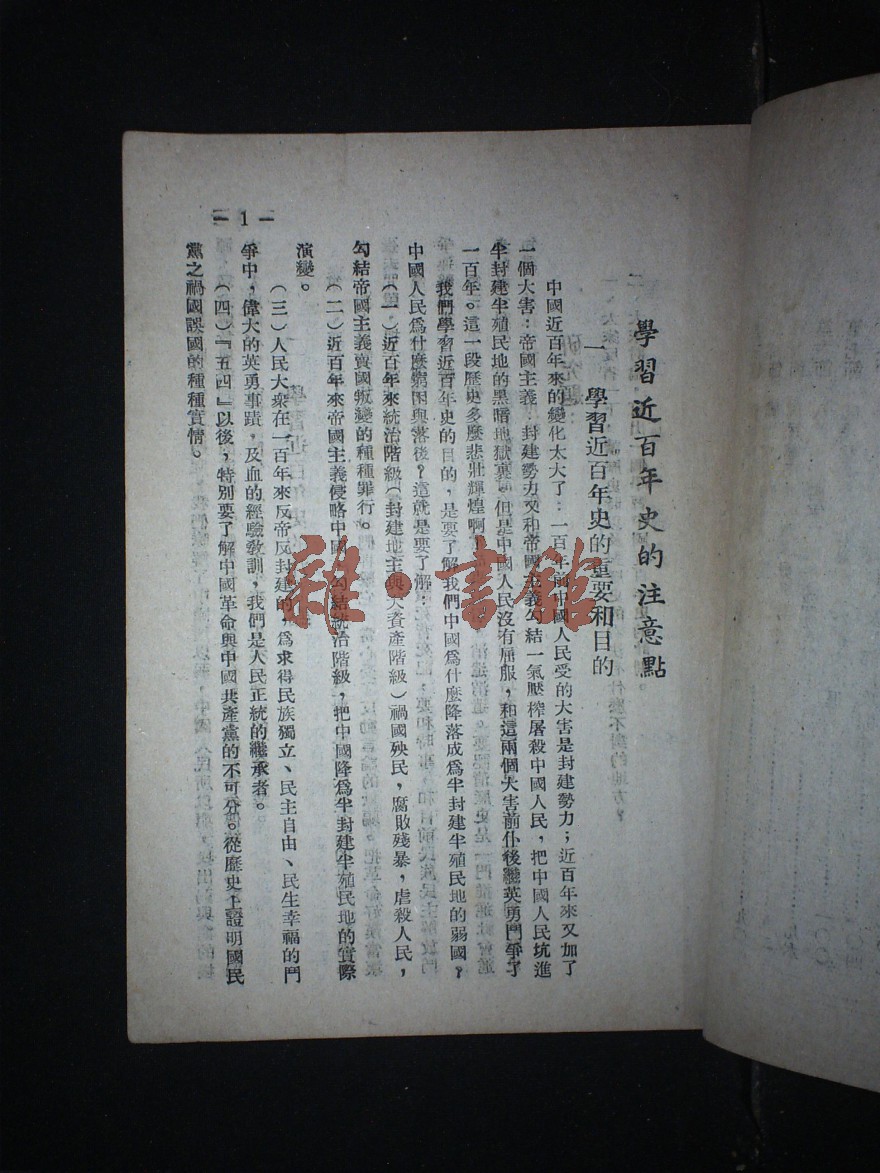 學習近百年史的注意點
一 學習近百年史的重要和目的
中國近百年來的變化太大了：一百年前中國人民受的大害是封建勢力；近百年來又加了
一個大害：帝國主義。封建勢力又和帝國主義勾結一氣壓榨屠殺中國人民，把中國人民坑進
半封建半殖民地的黑暗地獄裏。但是中國人民沒有屈服，和這兩個大害前仆後繼英勇鬥爭了
一百年。這一段歷史多麼悲壯輝煌啊！
我們學習近百年史的目的，是要了解我們中國爲什麼降落成爲半封建半殖民地的弱國？
中國人民爲什麼窮困與落後？這就是要了解：
（一）近百年來統治階級（封建地主與大資產階級）禍國殃民，腐敗殘暴，虐殺人民，
勾結帝國主義賣國叛變的種種罪行。
（二）近百年來帝國主義侵略中國，勾結統治階級，把中國降爲半封建半殖民地的實際
演變。
（三）人民大衆在一百年來反帝反封建的，爲求得民族獨立、民主自由、民生幸福的鬥
爭中，偉大的英勇事蹟，及血的經驗敎訓，我們是人民正統的繼承者。
（四）『五四』以後，特別要了解中國革命與中國共產黨的不可分。從歷史上證明國民
黨之禍國誤國的種種實情。
— 1 —
雜·書館